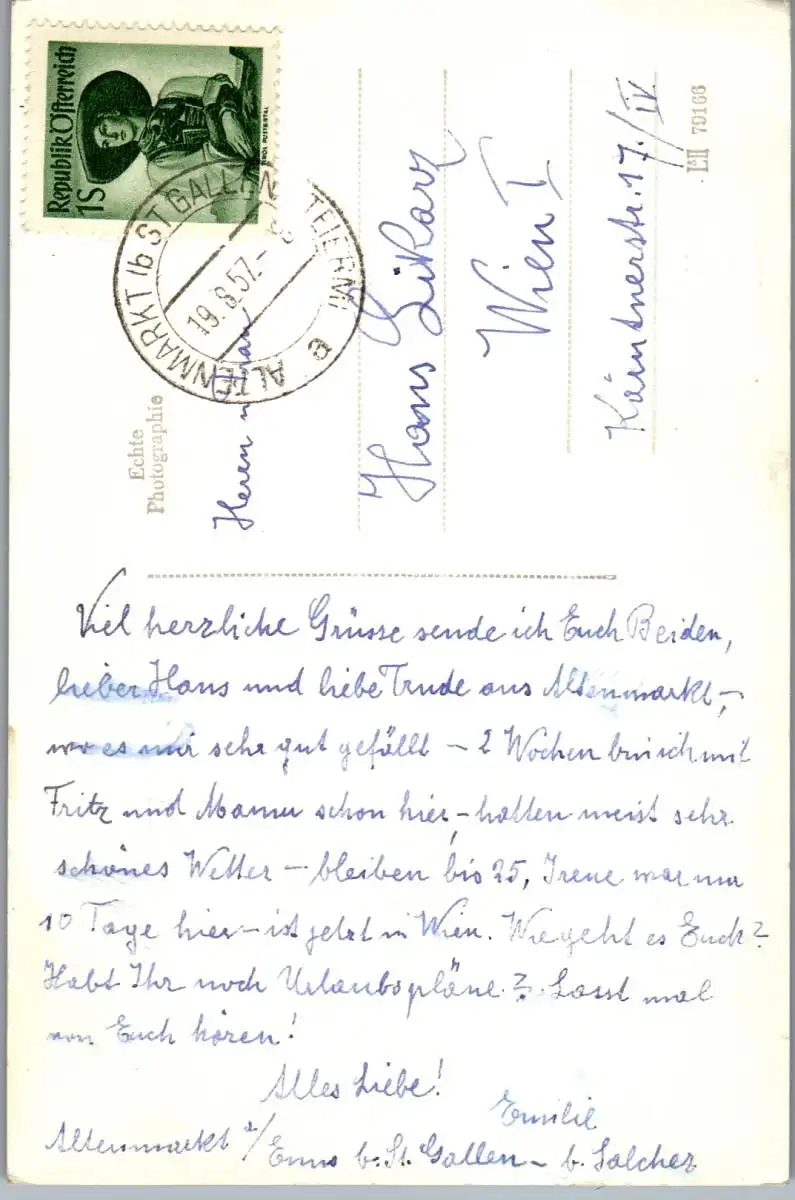 Republik Österreich
1S
TIROL PUSTERTAL
ALTENMARKT Ib ST GALLEN STEIERM
19.8.57.-
a
Echte
Photographie
Herrn u Frau
Hans Likarz
Wien I
Kärntnerstr. 17./IV
L II 79166
Viel herzliche Grüsse sende ich Euch Beiden,
lieber Hans und liebe Trude aus Altenmarkt,–
wo es mir sehr gut gefällt – 2 Wochen bin ich mit
Fritz und Mamu schon hier,– hatten meist sehr
schönes Wetter – bleiben bis 25, Irene war nur
10 Tage hier – ist jetzt in Wien. Wie geht es Euch?
Habt Ihr noch Urlaubspläne?. Lasst mal
von Euch hören!
Alles Liebe!
Emilie
Altenmarkt a/Enns b. St. Gallen – b. Salcher